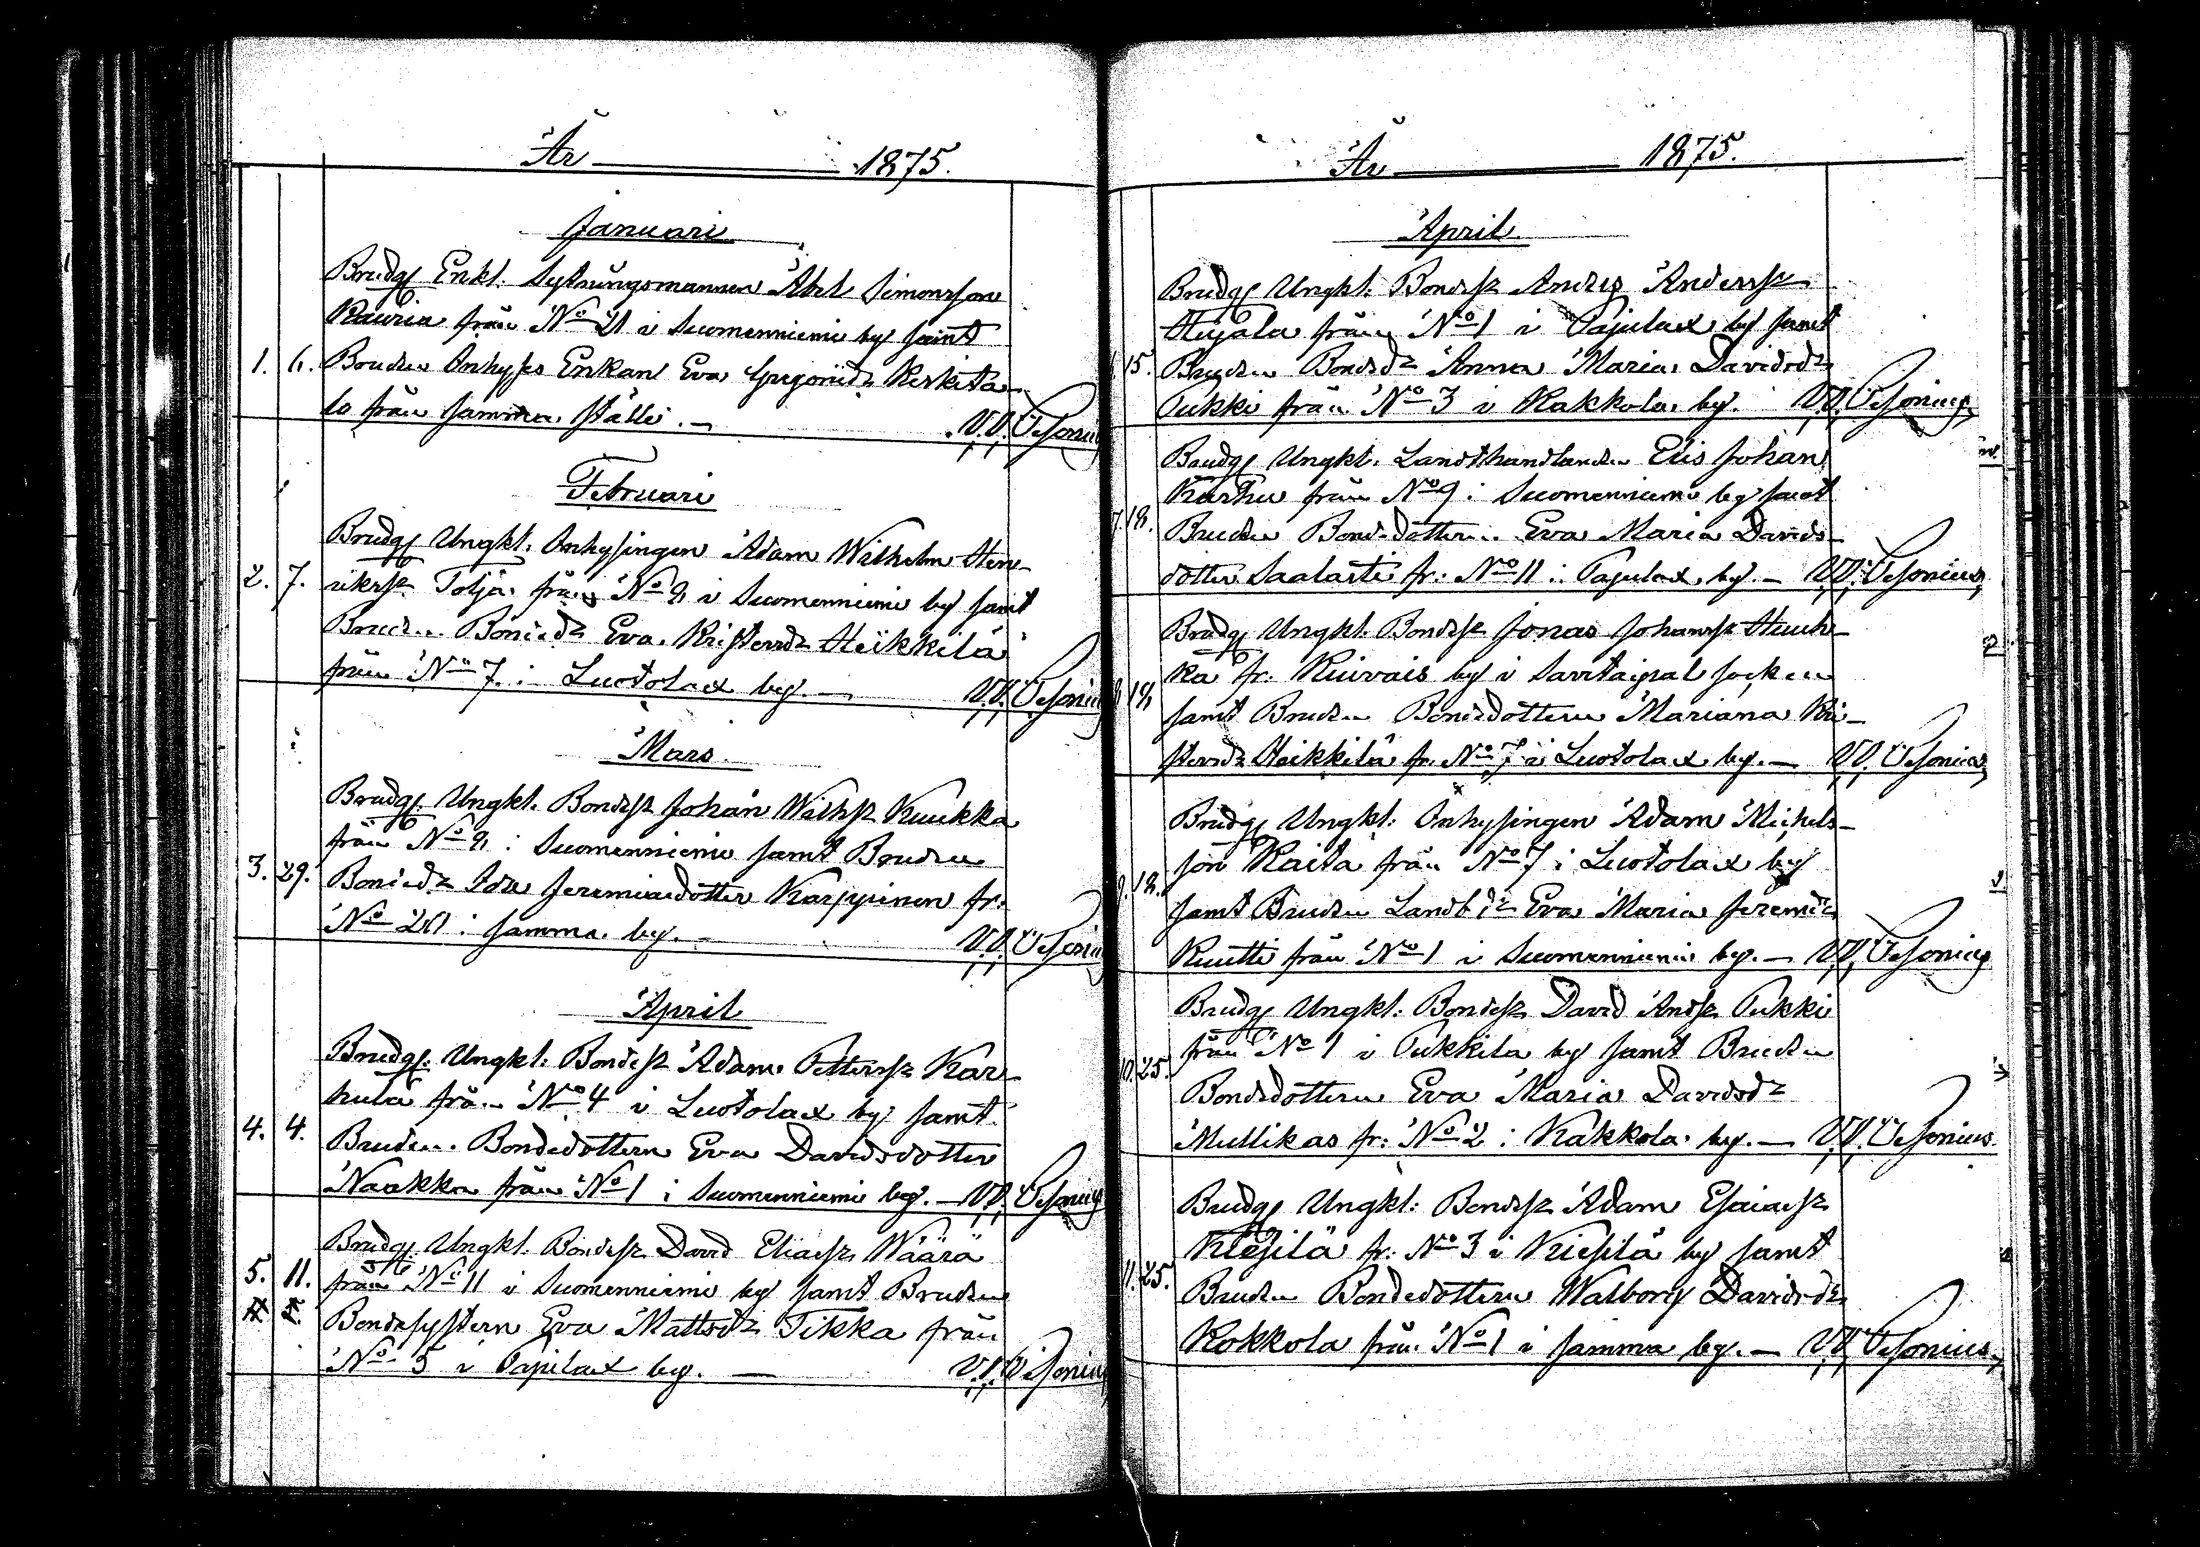 År 1875.
Januari
Brudg. Enkl. Sytningsmannen Abel Simonsson
Rauria från No 21 i Suomenniemi by samt
1. 6. Bruden Inhyses Enkan Eva Gregorisdr Keskita-
lo från samma ställe. — V.V. Cesonius
Februari
Brudg. Ungkl. Inhysingen Adam Wilhelm Hen-
2. 7. rikssr Toljä från No 9 i Suomenniemi by samt
Bruden Bondedr Eva Kristersdr Heikkilä
från No 7 i Luotolax by. — V.V. Cesonius
Mars
Brudg. Ungkl. Bondesr Johan Wilhsr Kuukka
från No 9 i Suomenniemi samt Bruden
3. 29. Bondedr Ida Jeremiaedotter Karppinen fr.
No 20 i samma by. — V.V. Cesonius
April
Brudg. Ungkl. Bondesr Adam Pettersr Kar-
hula från No 4 i Luotolax by samt
4. 4. Bruden Bondedottern Eva Davidsdotter
Naakka från No 1 i Suomenniemi by. — V.V. Cesonius
Brudg. Ungkl. Bondesr David Eliaesr Wäärä
5. 11. från No 11 i Suomenniemi by samt Bruden
Bondesystern Eva Mattsdr Tikka från
No 5 i Pajulax by. — V.V. Cesonius
År 1875.
April.
Brudg. Ungkl. Bondesr Anders Anderssr
Heijala från No 1 i Pajulax by samt
15. Bruden Bondedr Anna Maria Davidsdr
Pukki från No 3 i Kakkola by. V.V. Cesonius
Brudg. Ungkl. Landthandlanden Elis Johan
Karhu från No 9 i Suomenniemi by samt
7. 18. Bruden Bondedottern Eva Maria Davids-
dotter Saalasti fr. No 11 i Pajulax by. — V.V. Cesonius
Brudg. Ungkl. Bondesr Jonas Johanssr Hauk-
ka fr. Kuivais by i Savitaipal socken
18. samt Bruden Bondedottern Mariana Kri-
stersdr Heikkilä fr. No 7 i Luotolax by. — V.V. Cesonius
Brudg. Ungkl. Inhysingen Adam Michels-
son Raita från No 7 i Luotolax by
9. 18. samt Bruden Landbdr Eva Maria Jeremdr
Kuutti från No 1 i Suomenniemi by. — V.V. Cesonius
Brudg. Ungkl. Bondesr David Andsr Pukki
från No 1 i Pukkila by samt Bruden
10. 25. Bondedottern Eva Maria Davidsdr
Mullikas fr. No 2 i Kakkola by. — V.V. Cesonius
Brudg. Ungkl. Bondesr Adam Esaiaesr
Kiesilä fr. No 3 i Kiesilä by samt
11. 25. Bruden Bondedottern Walborg Davidsdr
Kokkola från No 1 i samma by. — V.V. Cesonius